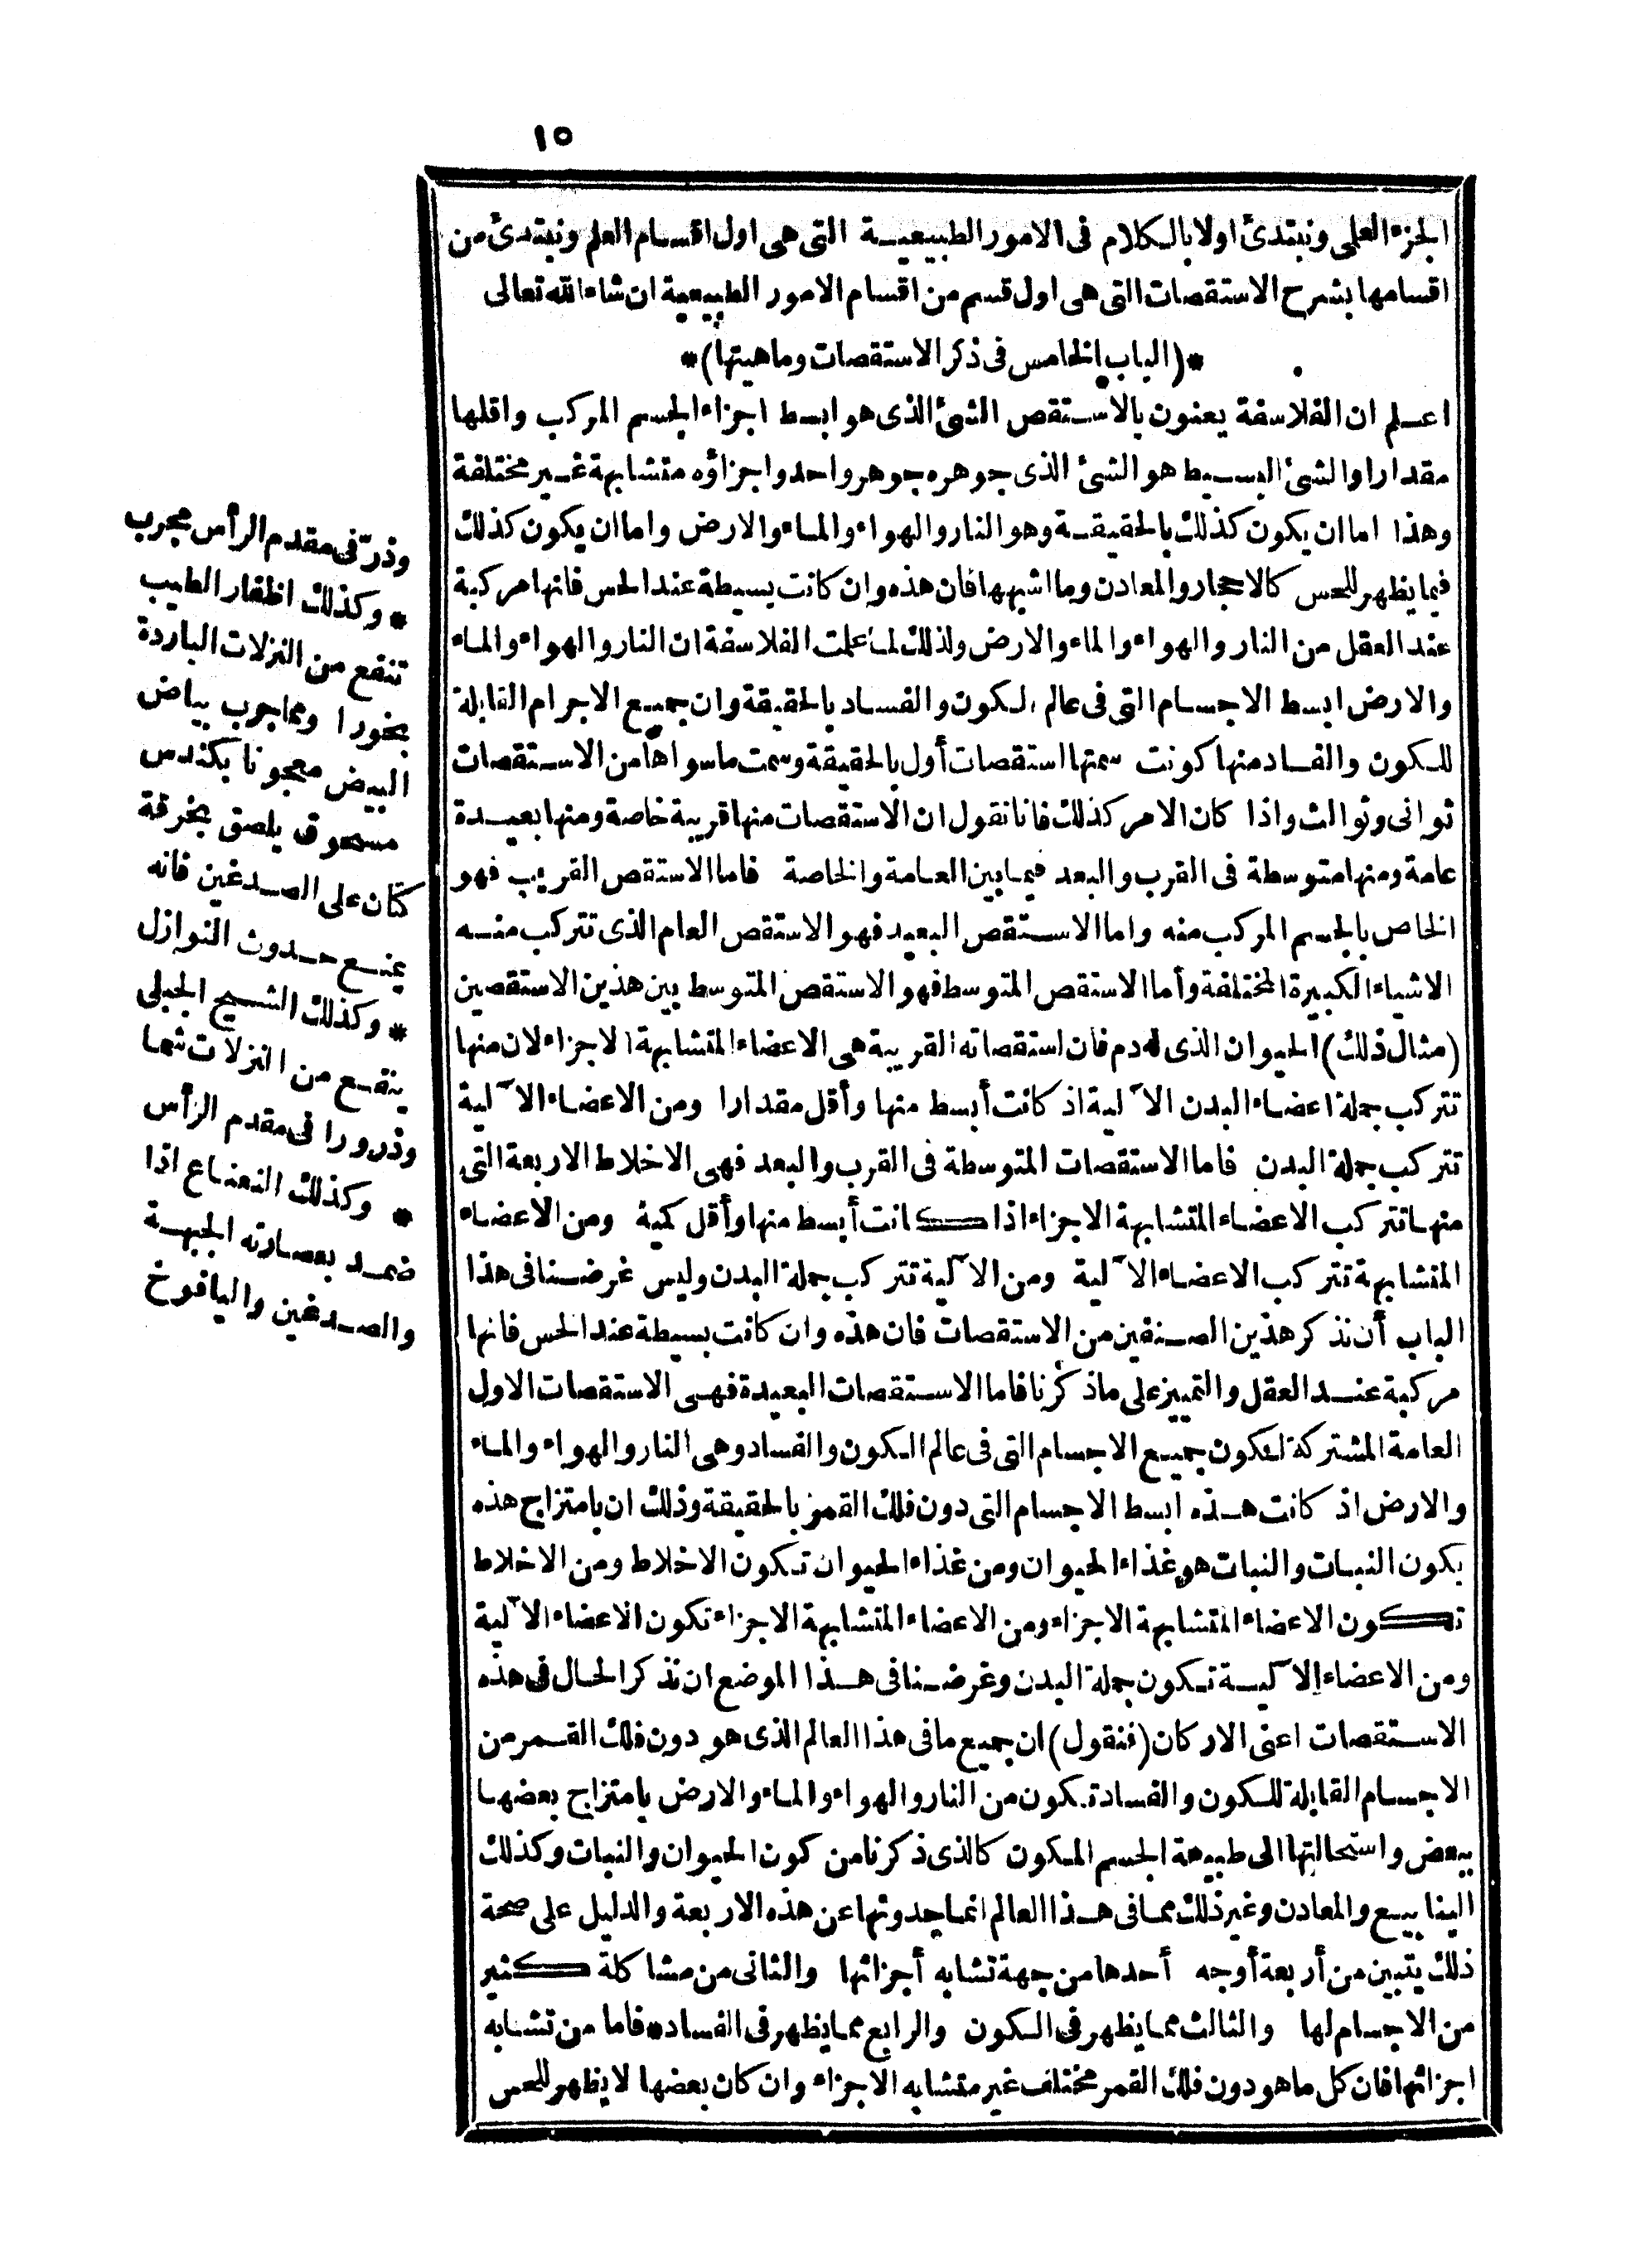 ١٥
الجزء العلمى ونبتدئ اولا بالكلام فى الامور الطبيعية التى هى اول اقسام العلم ونبتدئ من
اقسامها بشرح الاستقصات التى هى اول قسم من اقسام الامور الطبيعية ان شاء الله تعالى
*(الباب الخامس فى ذكر الاستقصات وماهيتها)*
اعلم ان الفلاسفة يعنون بالاستقص الشئ الذى هو ابسط اجزاء الجسم المركب واقلها
مقدارا والشئ البسيط هو الشئ الذى جوهره جوهر واحد واجزاؤه متشابهة غير مختلفة
وهذا اما ان يكون كذلك بالحقيقة وهو النار والهواء والماء والارض واما ان يكون كذلك
فيما يظهر للحس كالاحجار والمعادن وما اشبهها فان هذه وان كانت بسيطة عند الحس فانها مركبة
عند العقل من النار والهواء والماء والارض ولذلك لما علمت الفلاسفة ان النار والهواء والماء
والارض ابسط الاجسام التى فى عالم الكون والفساد بالحقيقة وان جميع الاجرام القابلة
للكون والفساد منها كونت سمتها استقصات أول بالحقيقة وسمت ما سواها من الاستقصات
ثوانى وثوالث واذا كان الامر كذلك فانا نقول ان الاستقصات منها قريبة خاصة ومنها بعيدة
عامة ومنها متوسطة فى القرب والبعد فيما بين العامة والخاصة فاما الاستقص القريب فهو
الخاص بالجسم المركب منه واما الاستقص البعيد فهو الاستقص العام الذى تتركب منه
الاشياء الكبيرة المختلفة وأما الاستقص المتوسط فهو الاستقص المتوسط بين هذين الاستقصين
(مثال ذلك) الحيوان الذى له دم فان استقصاته القريبة هى الاعضاء المتشابهة الاجزاء لان منها
تتركب جملة اعضاء البدن الآلية اذ كانت أبسط منها وأقل مقدارا ومن الاعضاء الآلية
تتركب جملة البدن فاما الاستقصات المتوسطة فى القرب والبعد فهى الاخلاط الاربعة التى
منها تتركب الاعضاء المتشابهة الاجزاء اذا كانت أبسط منها وأقل كمية ومن الاعضاء
المتشابهة تتركب الاعضاء الآلية ومن الآلية تتركب جملة البدن وليس غرضنا فى هذا
الباب أن نذكر هذين الصنفين من الاستقصات فان هذه وان كانت بسيطة عند الحس فانها
مركبة عند العقل والتمييز على ما ذكرنا فاما الاستقصات البعيدة فهى الاستقصات الاول
العامة المشتركة لتكون جميع الاجسام التى فى عالم الكون والفساد وهى النار والهواء والماء
والارض اذ كانت هذه ابسط الاجسام التى دون فلك القمر بالحقيقة وذلك ان بامتزاج هذه
يكون النبات والنبات هو غذاء الحيوان ومن غذاء الحيوان تكون الاخلاط ومن الاخلاط
تكون الاعضاء المتشابهة الاجزاء ومن الاعضاء المتشابهة الاجزاء تكون الاعضاء الآلية
ومن الاعضاء الآلية تكون جملة البدن وغرضنا فى هذا الموضع ان نذكر الحال فى هذه
الاستقصات اعنى الاركان (فنقول) ان جميع ما فى هذا العالم الذى هو دون فلك القمر من
الاجسام القابلة للكون والفساد تكون من النار والهواء والماء والارض بامتزاج بعضها
ببعض واستحالتها الى طبيعة الجسم المكون كالذى ذكرنا من كون الحيوان والنبات وكذلك
الينابيع والمعادن وغير ذلك مما فى هذا العالم انما حدوثها عن هذه الاربعة والدليل على صحة
ذلك يتبين من أربعة أوجه أحدها من جهة تشابه أجزائها والثانى من مشاكلة كثير
من الاجسام لها والثالث مما يظهر فى الكون والرابع مما يظهر فى الفساد* فاما من تشابه
اجزائها فان كل ما هو دون فلك القمر مختلف غير متشابه الاجزاء وان كان بعضها لا يظهر للحس
وذرّ فى مقدم الرأس مجرب
* وكذلك اظفار الطيب
تنفع من النزلات الباردة
بخورا ومما جرب بياض
البيض معجونا بكندس
مسحوق يلصق بخرقة
كتان على الصدغين فانه
يمنع حدوث النوازل
* وكذلك الشيح الجبلى
ينفع من النزلات شما
وذرورا فى مقدم الرأس
* وكذلك النعناع اذا
ضمد بعصارته الجبهة
والصدغين واليافوخ